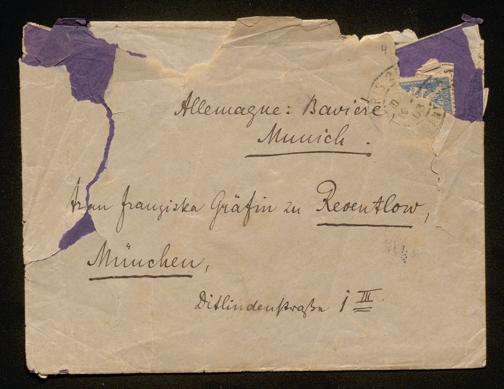 Allemagne: Bavière
Munich.
Frau Franziska Gräfin zu Reventlow,
München,
Ditlindenstraße 1 III.